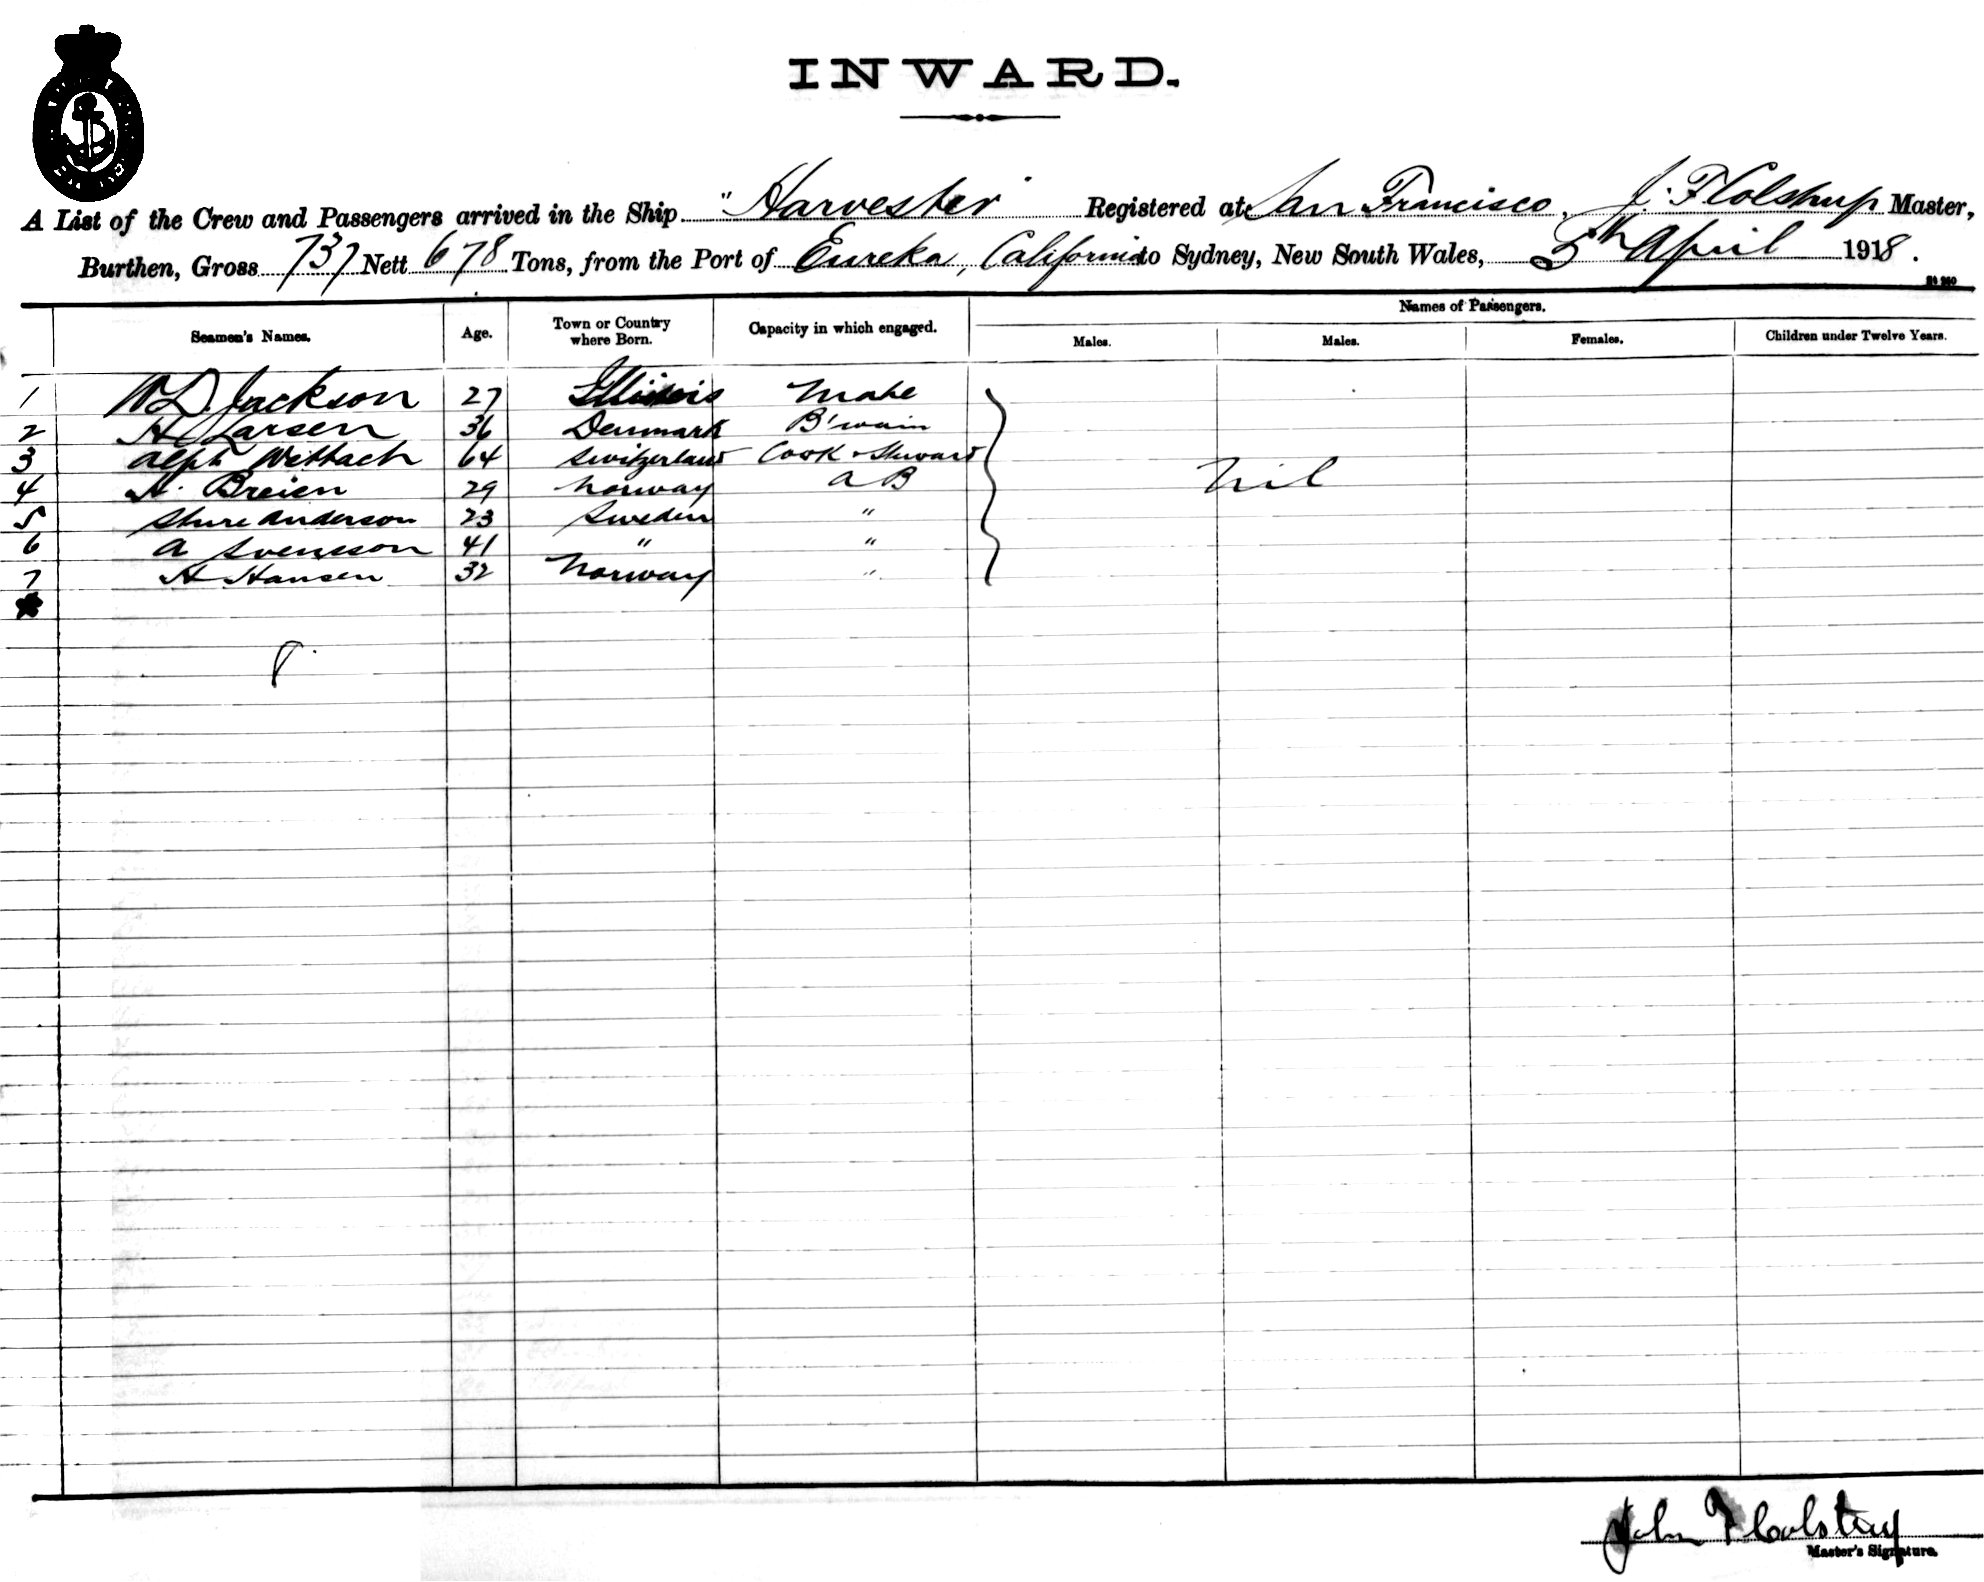 INWARD.
A List of the Crew and Passengers arrived in the Ship "Harvester" Registered at San Francisco, J. Flolstrup Master,
Burthen, Gross 737 Nett 678 Tons, from the Port of Eureka, California to Sydney, New South Wales, 5th April 1918.
Names of Passengers.
Seamen's Names. Age. Town or Country where Born. Capacity in which engaged. Males. Males. Females. Children under Twelve Years.
1 W D. Jackson 27 Illinois Mate
2 H Larsen 36 Denmark B'swain
3 Alph Wettach 64 Switzerland Cook & Steward
4 H. Breien 29 Norway A B Nil
5 Sture Anderson 23 Sweden "
6 A Svensson 41 " "
7 H Hansen 32 Norway "
John
Master's Signature.